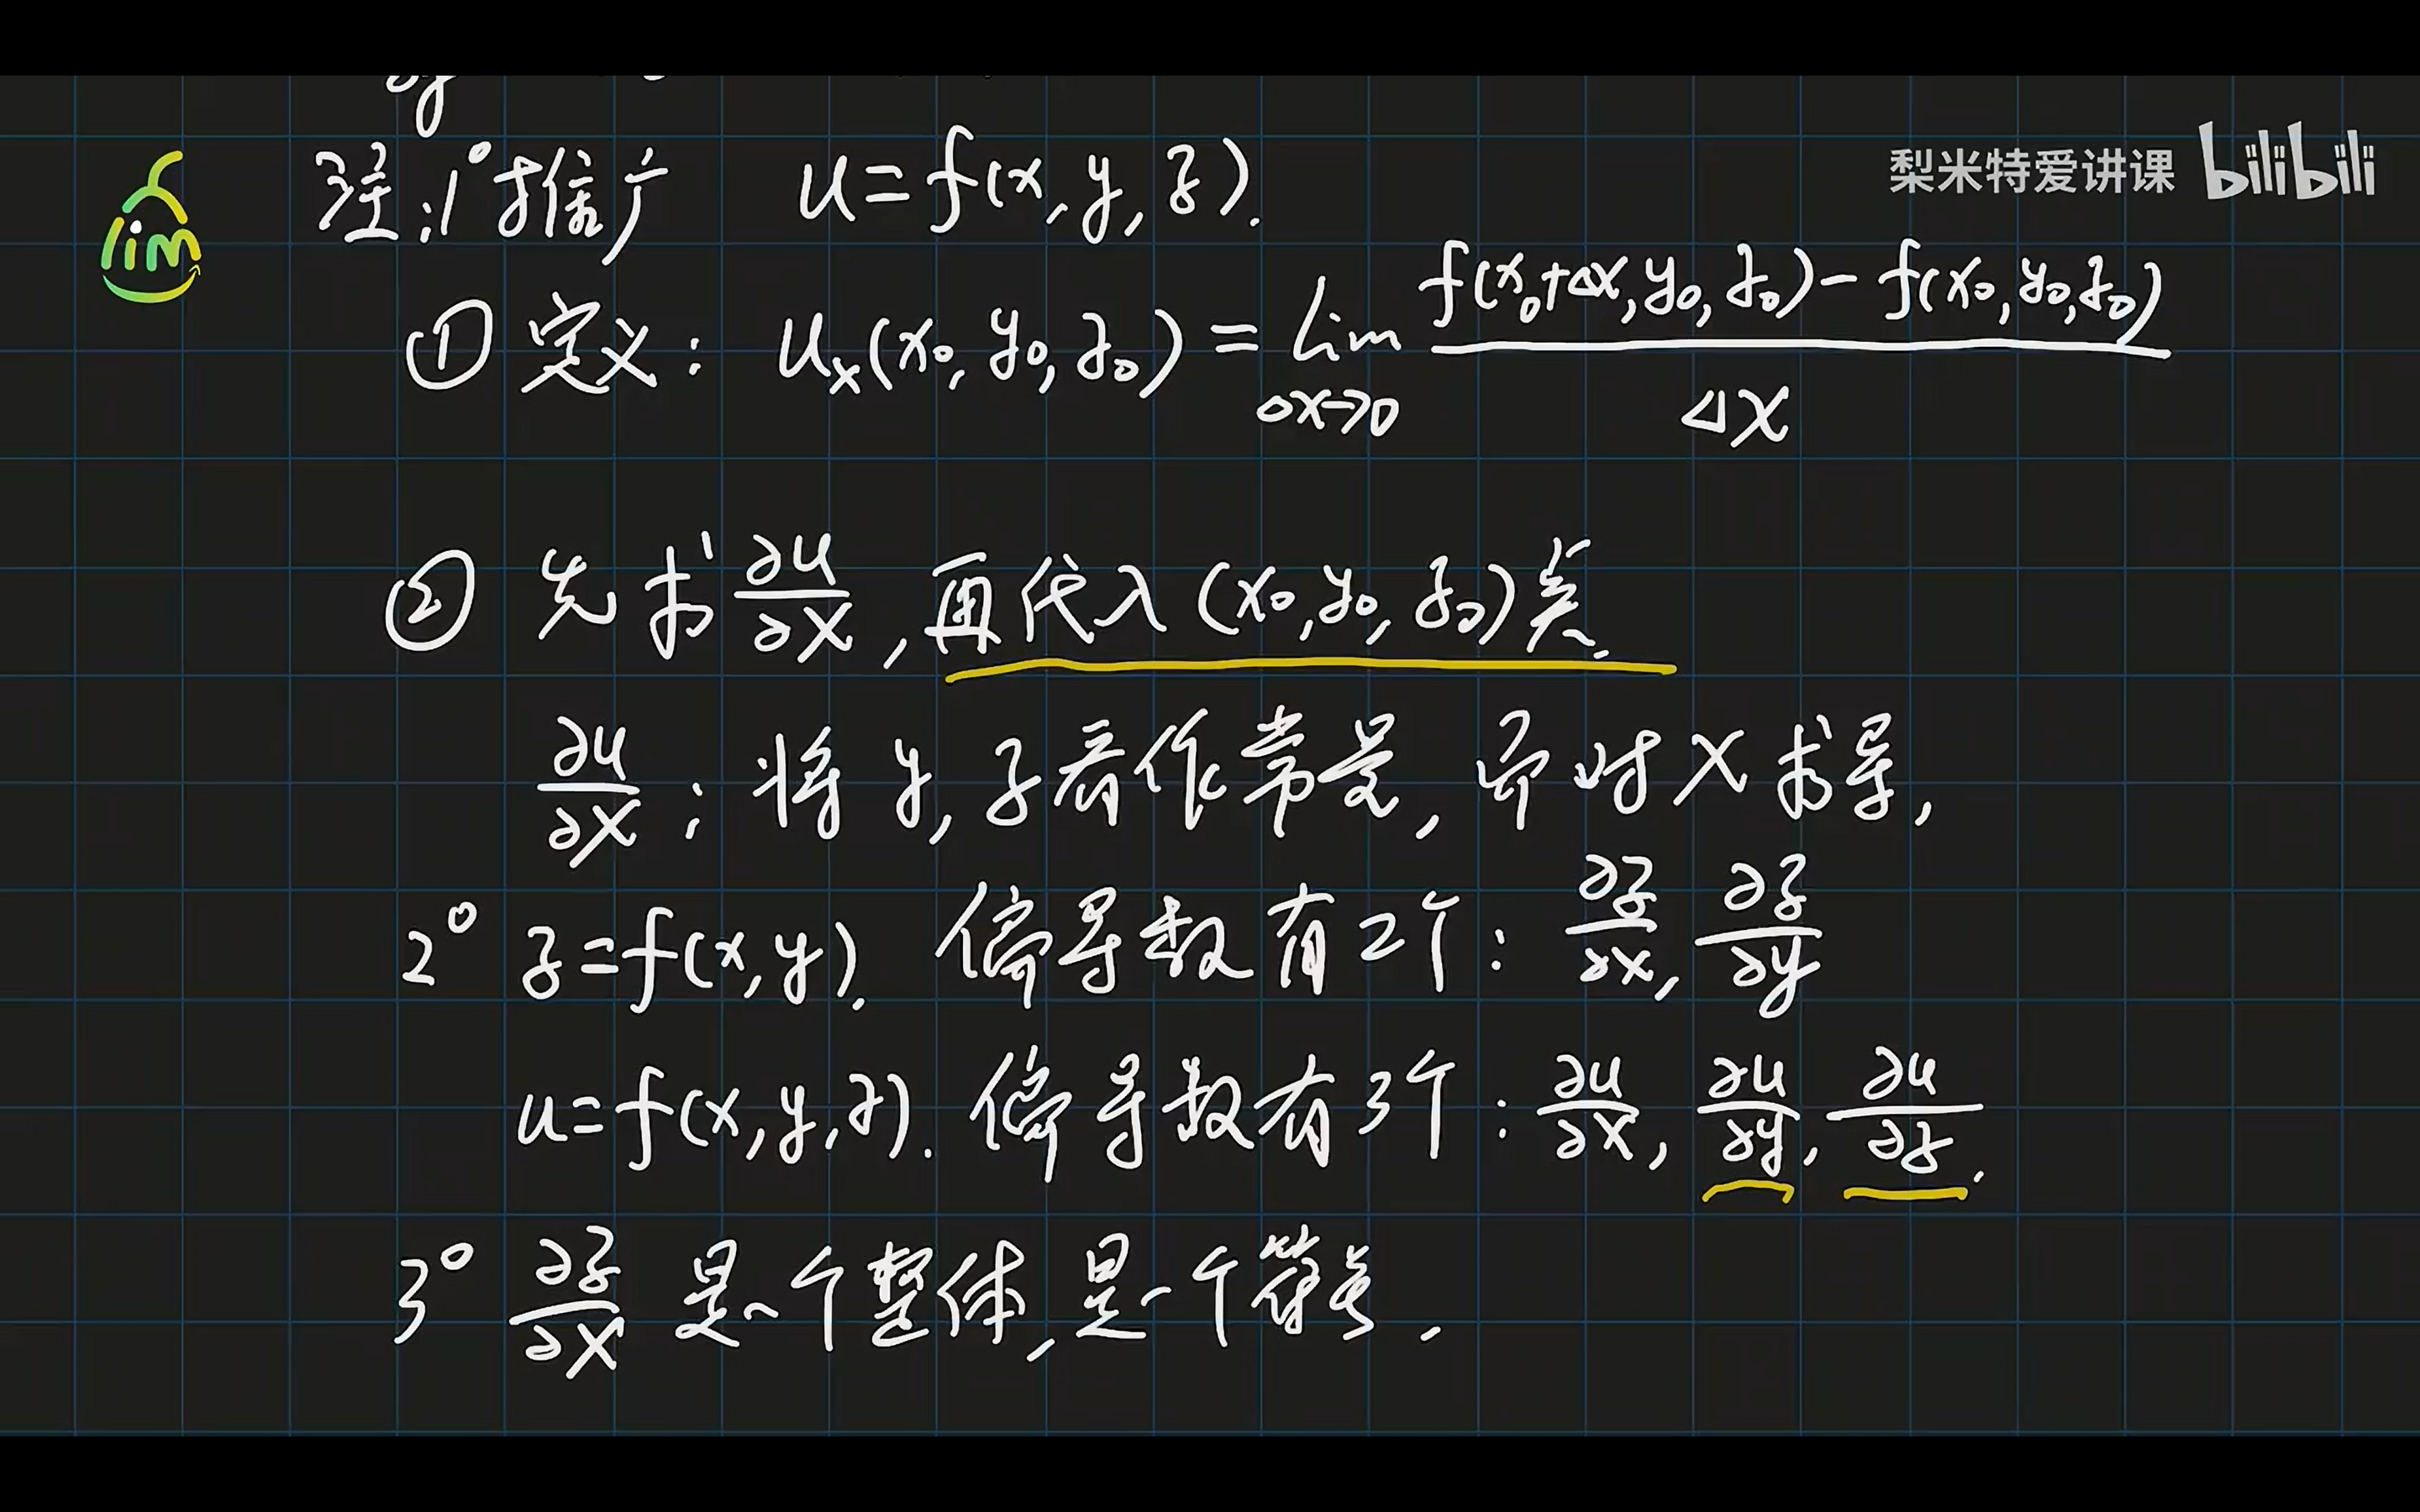 梨米特爱讲课 bilibili
lim
注:1° 推广 u=f(x,y,z).
① 定义: u_x(x₀,y₀,z₀) = lim_{Δx→0} \frac{f(x₀+Δx,y₀,z₀)-f(x₀,y₀,z₀)}{Δx}
② 先求 ∂u/∂x, 再代入(x₀,y₀,z₀)点.
∂u/∂x: 将y,z看作常量, 只对x求导,
2° z=f(x,y). 偏导数有2个: ∂z/∂x, ∂z/∂y
u=f(x,y,z). 偏导数有3个: ∂u/∂x, ∂u/∂y, ∂u/∂z.
3° ∂z/∂x 是一个整体, 是一个符号,